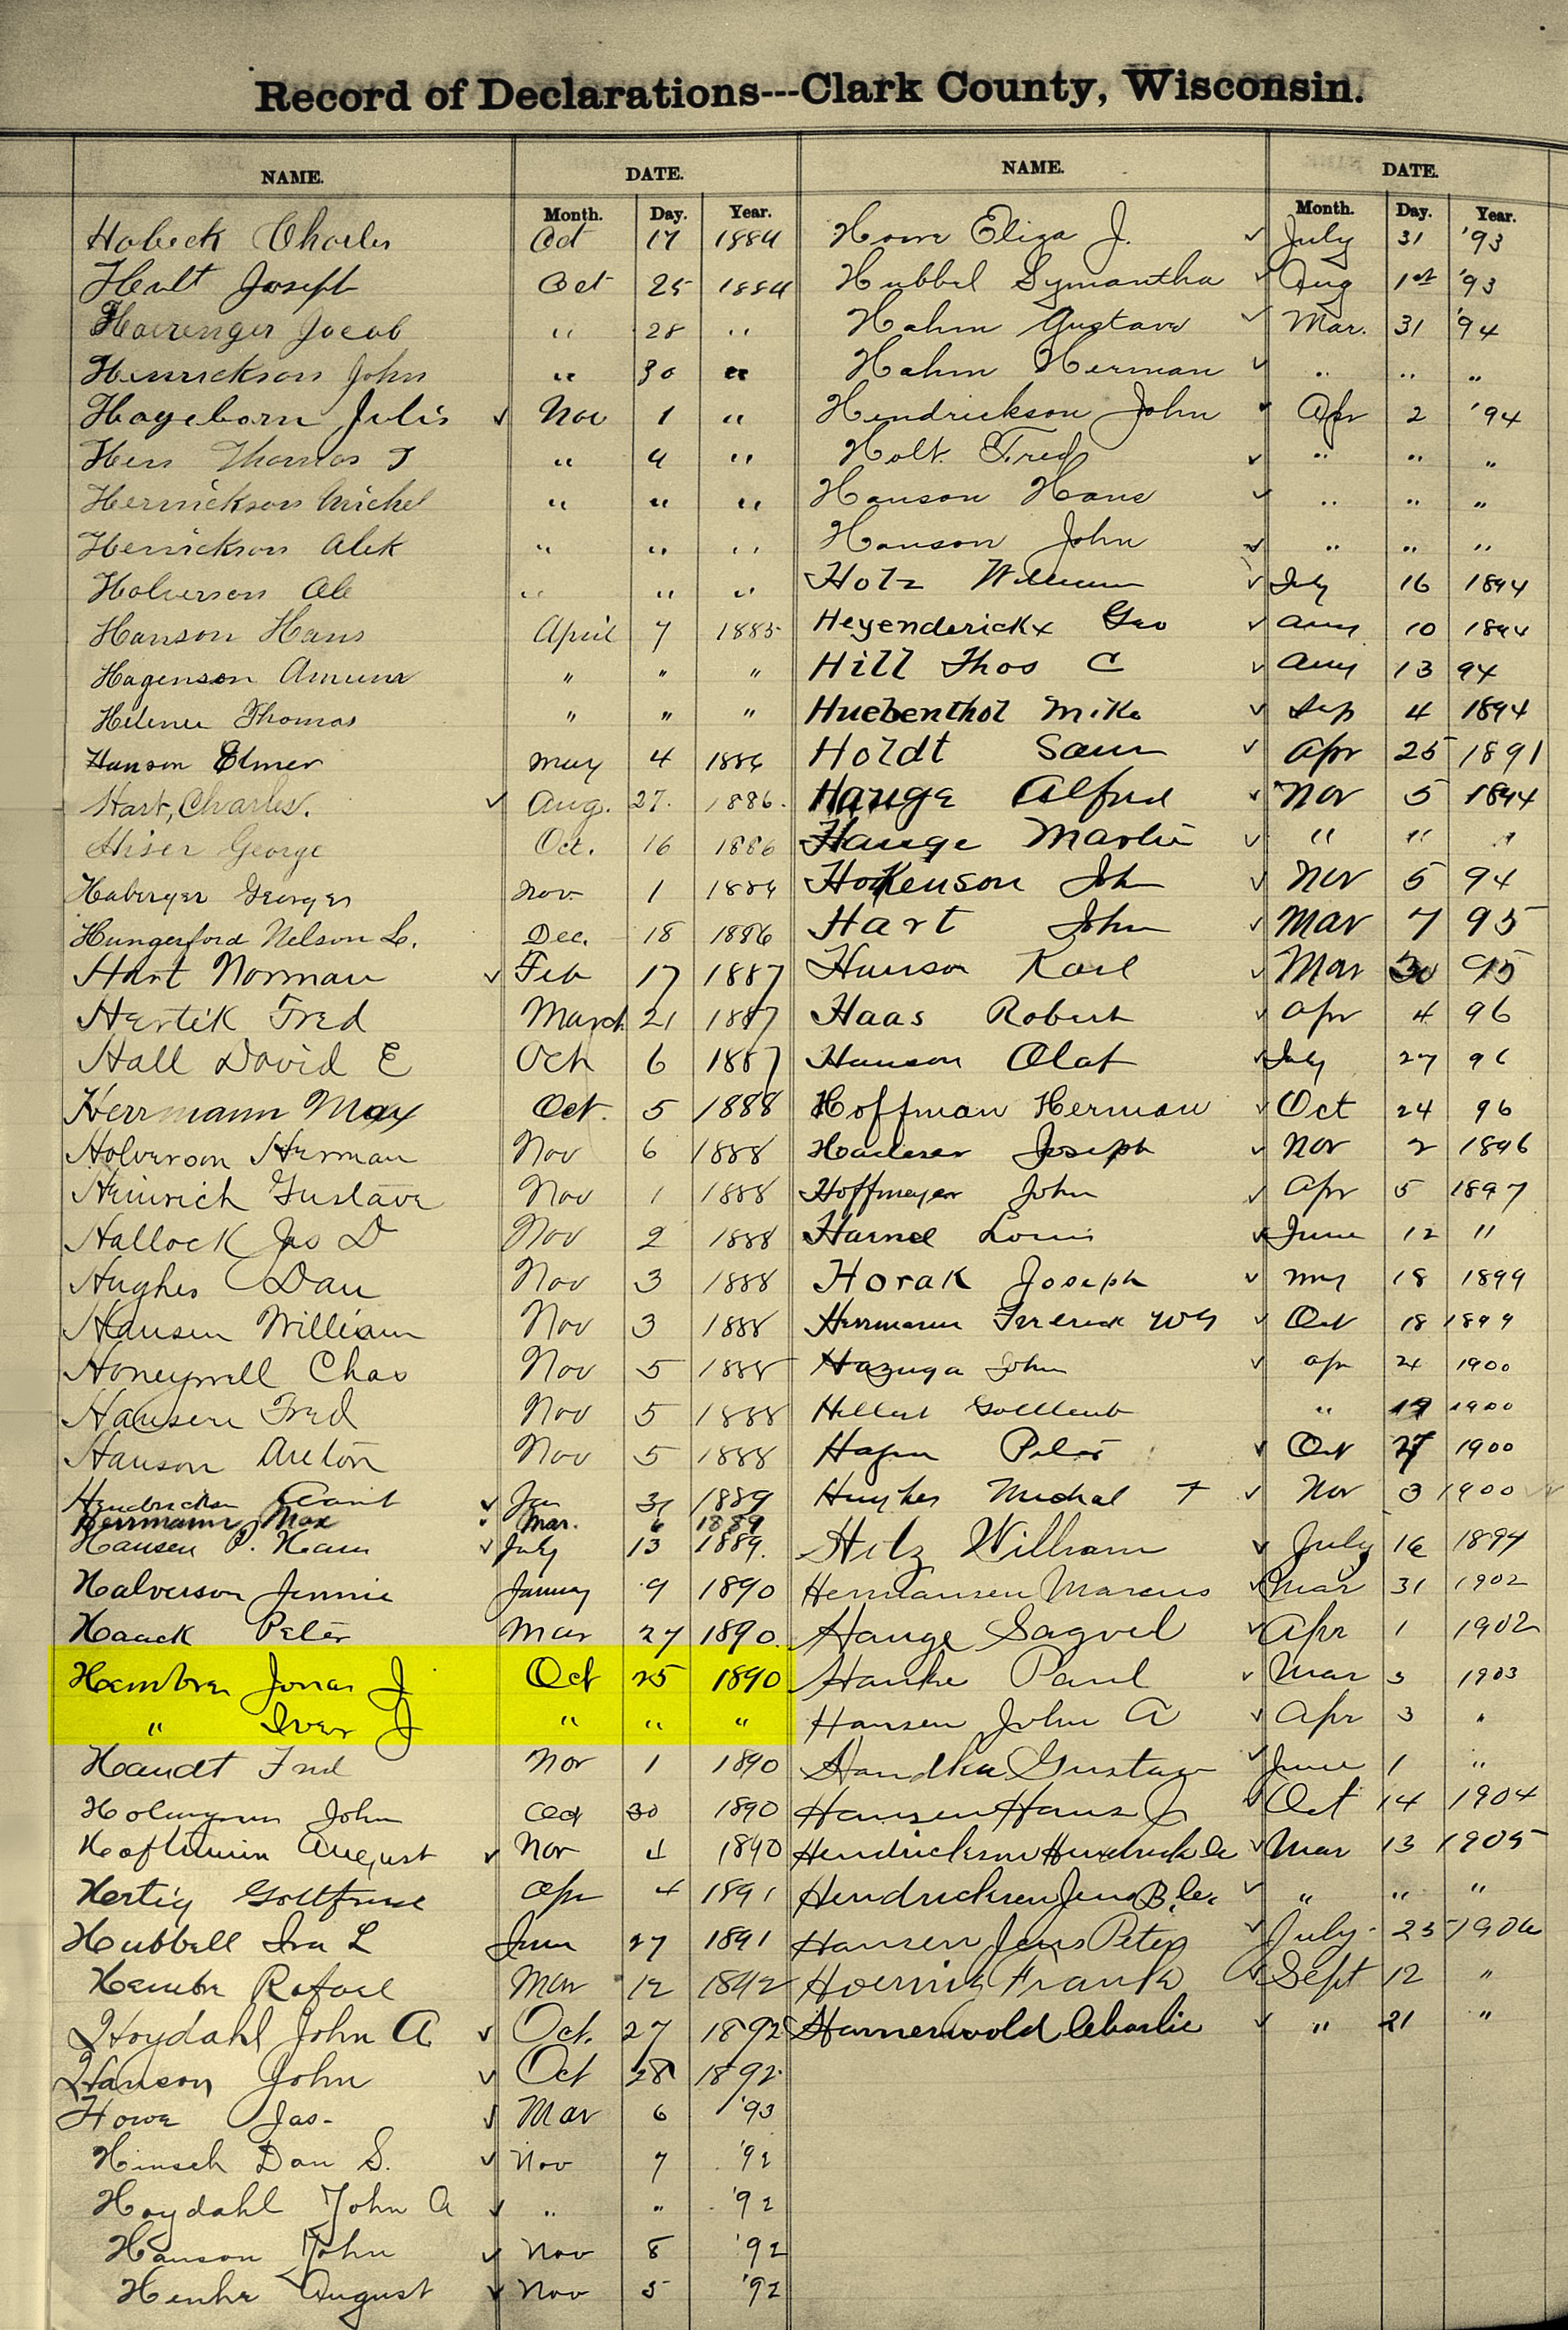 Record of Declarations---Clark County, Wisconsin.
NAME. DATE. NAME. DATE.
Month. Day. Year. Month. Day. Year.
Habeck Charles Oct 17 1884
Hult Joseph Oct 25 1884
Jacob " 28 "
Henrickson John " 30 "
Hageborn Julis ✓ Nov 1 "
Thomas " "
Henrickson Michel " " "
Henrickson Alek " " "
Holverson Ole " " "
Hanson Hans April 7 1885
Hagenson " " "
Thomas " " "
Hanson Elmer May 4 1886
Hart, Charles. ✓ Aug. 27. 1886.
Hiser George Oct. 16 1886
Haberger Georges Nov. 1 1886
Hungerford Nelson L. Dec. 18 1886
Hart Norman ✓ Feb 17 1887
Hertik Fred March 21 1887
Hall David E Oct 6 1887
Herrmann Max Oct. 5 1888
Holverson Herman Nov 6 1888
Heinrich Gustave Nov 1 1888
Hallock Jas D Nov 2 1888
Hughes Dan Nov 3 1888
Hansen William Nov 3 1888
Honeywell Chas Nov 5 1888
Hansen Fred Nov 5 1888
Hanson Anton Nov 5 1888
✓ Jan 31 1889
Herrmann Max " Mar. 6 1889
Hansen P. ✓ July 13 1889.
Halverson Jennie January 9 1890
Haack Peter Mar 27 1890.
Hembre Jonas J Oct 25 1890
" Iver J " " "
Haudt Fred Nov 1 1890
John Oct 30 1890
August ✓ Nov 4 1890
Hertig Gottfried Apr 4 1891
Hubbell Ira L June 27 1891
Hembre Rafael Mar 12 1892
Hoydahl John A ✓ Oct. 27 1892
Hanson John ✓ Oct 28 1892
Howe Jas- ✓ Mar 6 '93
Dan S. ✓ Nov 7 '92
Hoydahl John A ✓ " " '92
Hanson John ✓ Nov 8 '92
Henke August ✓ Nov 5 '92
Howe Eliza J. ✓ July 31 '93
Hubbel Symantha ✓ Aug 1st '93
Hahm Gustave ✓ Mar. 31 '94
Hahm Herman ✓ " " "
Hendrickson John ✓ Apr 2 '94
Holt Fred ✓ " " "
Hanson Hans ✓ " " "
Hanson John ✓ " " "
Holz William ✓ July 16 1894
Heyenderickx Geo ✓ Aug 10 1894
Hill Thos C ✓ Aug 13 94
Huebenthol Mike ✓ Sep 4 1894
Holdt Sam ✓ Apr 25 1891
Hauge Alfred ✓ Nov 5 1894
Hauge Martin ✓ " " "
Hokenson John ✓ Nov 5 94
Hart John ✓ Mar 7 95
Hanson Karl ✓ Mar 30 95
Haas Robert ✓ Apr 4 96
Hanson Olaf ✓ July 27 96
Hoffman Herman ✓ Oct 24 96
Joseph ✓ Nov 2 1896
Hoffmeyer John ✓ Apr 5 1897
Louis ✓ June 12 "
Horak Joseph ✓ May 18 1899
Herrmann ✓ Oct 18 1899
Hazuga John ✓ Apr 24 1900
" 19 1900
Peter ✓ Oct 27 1900
Hughes Micheal T ✓ Nov 3 1900
William ✓ July 16 1894
Hermansen Marcus ✓ Mar 31 1902
Hauge Sagvel ✓ Apr 1 1902
Hanke Paul ✓ Mar 3 1903
Hansen John A ✓ Apr 3 "
Gustav ✓ June 1 "
Hansen Hans J ✓ Oct 14 1904
Hendrickson ✓ Mar 13 1905
Hendricksen ✓ " " "
Hansen Jens Peter ✓ July 23 1906
Frank ✓ Sept 12 "
Hamerwold Charlie ✓ " 21 "